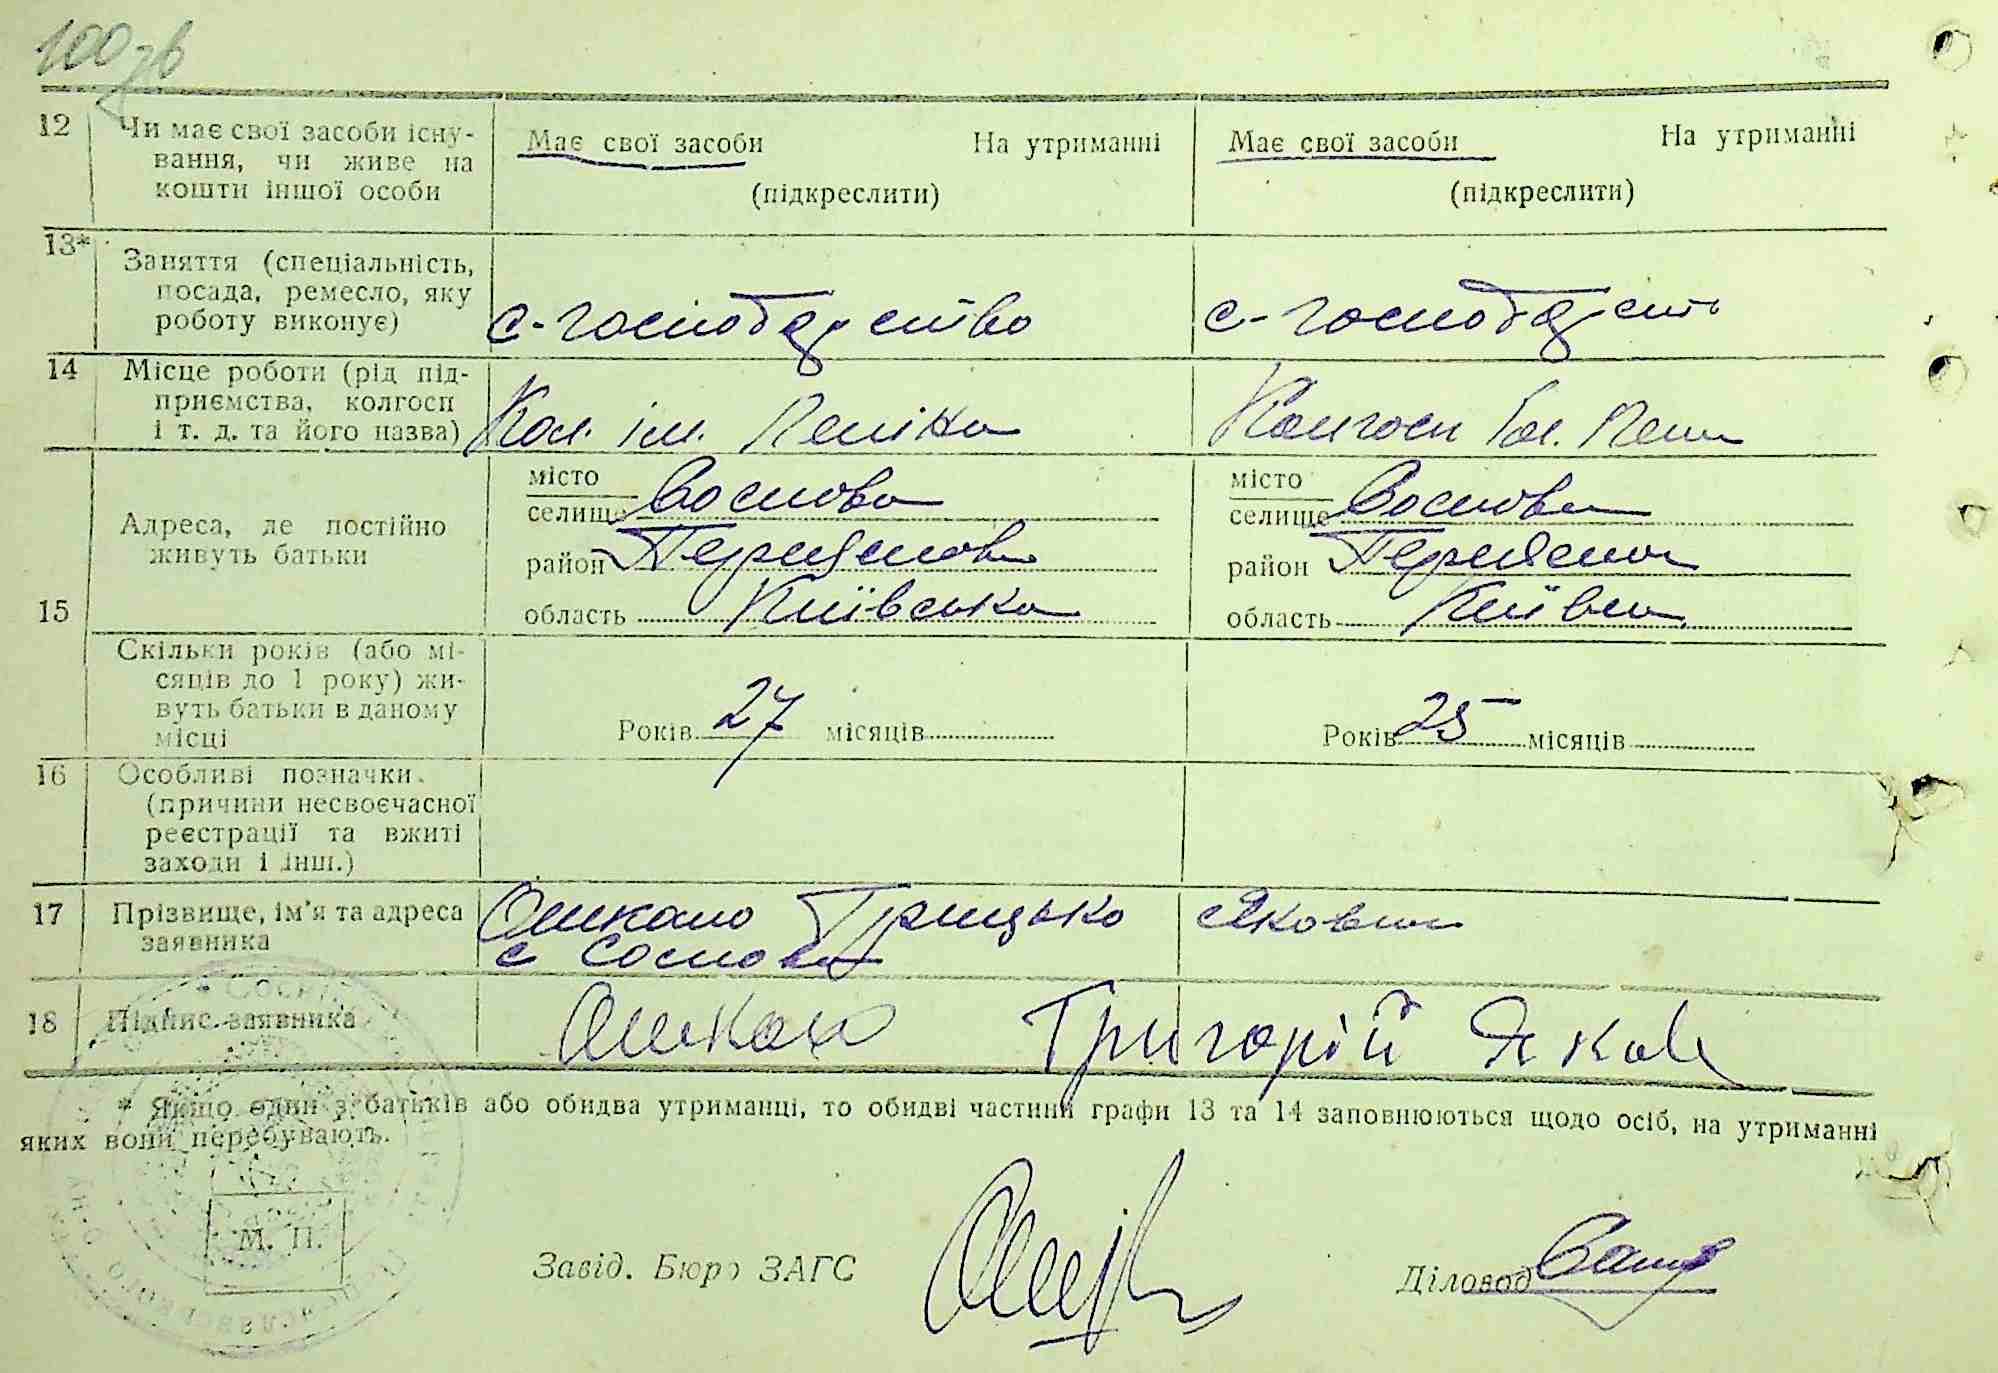 100 зв
12 Чи має свої засоби існу-
вання, чи живе на
кошти іншої особи
Має свої засоби На утриманні
(підкреслити)
Має свої засоби На утриманні
(підкреслити)
13* Заняття (спеціальність,
посада, ремесло, яку
роботу виконує)
с-господарство
с-господарств
14 Місце роботи (рід під-
приємства, колгосп
і т. д. та його назва)
Кол. ім. Леніна
Колгосп ім. Лени
15 Адреса, де постійно
живуть батьки
місто
селище Соснова
район Переяслов
область Київська
місто
селище Соснова
район Переясло
область Київськ
Скільки років (або мі-
сяців до 1 року) жи-
вуть батьки в даному
місці
Років 27 місяців
Років 25 місяців
16 Особливі позначки.
(причини несвоєчасної
реєстрації та вжиті
заходи і інш.)
17 Прізвище, ім'я та адреса
заявника
Ошкало Грицько Якович
с Соснова
18 Підпис заявника
Ошкало Григорій Яков
* Якщо один з батьків або обидва утриманці, то обидві частини графи 13 та 14 заповнюються щодо осіб, на утриманні
яких вони перебувають.
М. П.
Завід. Бюро ЗАГС
Діловод